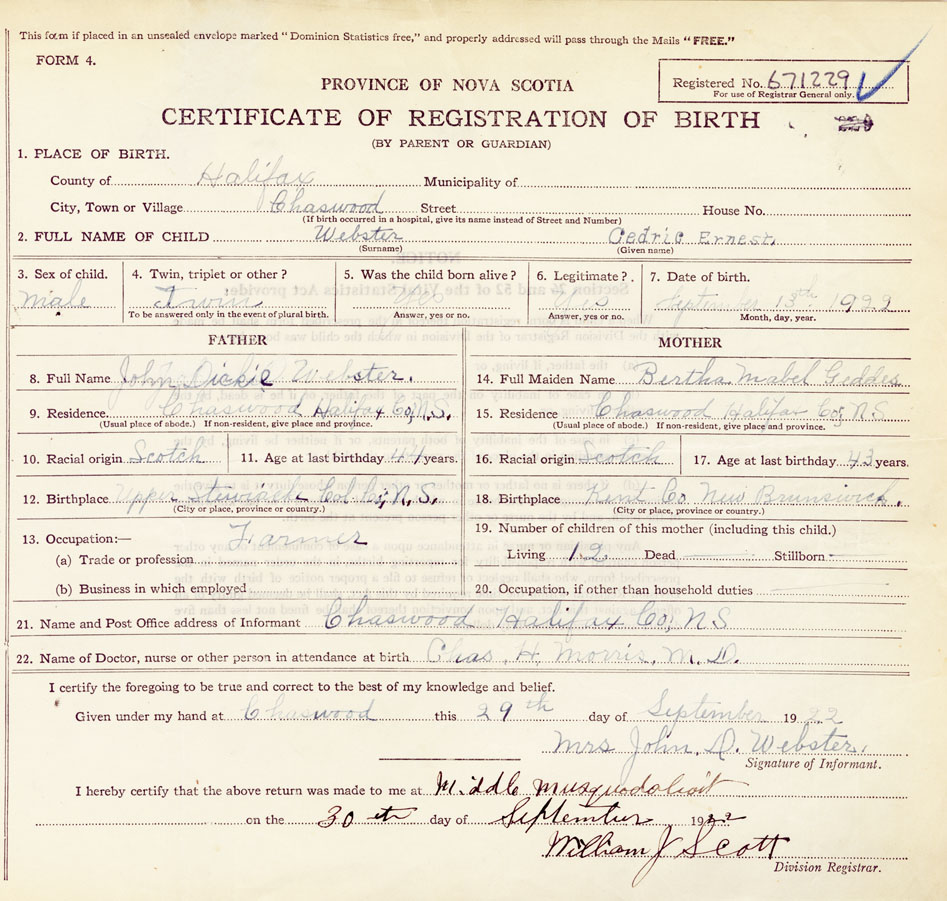 This form if placed in an unsealed envelope marked "Dominion Statistics free," and properly addressed will pass through the Mails "FREE."
FORM 4.
Registered No. 671229
For use of Registrar General only.
PROVINCE OF NOVA SCOTIA
CERTIFICATE OF REGISTRATION OF BIRTH
(BY PARENT OR GUARDIAN)
1. PLACE OF BIRTH.
County of Halifax Municipality of
City, Town or Village Chaswood Street House No.
(If birth occurred in a hospital, give its name instead of Street and Number)
2. FULL NAME OF CHILD Webster Cedric Ernest.
(Surname) (Given name)
3. Sex of child. 4. Twin, triplet or other? 5. Was the child born alive? 6. Legitimate? 7. Date of birth.
Male Twin Yes Yes September 13th 1922
To be answered only in the event of plural birth. Answer, yes or no. Answer, yes or no. Month, day, year.
FATHER MOTHER
8. Full Name John Dickie Webster. 14. Full Maiden Name Bertha Mabel Geddes
9. Residence Chaswood Halifax Co, N.S. 15. Residence Chaswood Halifax Co, N.S
(Usual place of abode.) If non-resident, give place and province. (Usual place of abode.) If non-resident, give place and province.
10. Racial origin Scotch 11. Age at last birthday 44 years. 16. Racial origin Scotch 17. Age at last birthday 43 years.
12. Birthplace Upper Stewiacke Col. Co, N.S. 18. Birthplace Kent Co New Brunswick.
(City or place, province or country.) (City or place, province or country.)
13. Occupation:— Farmer 19. Number of children of this mother (including this child.)
(a) Trade or profession Living 12 Dead Stillborn
(b) Business in which employed 20. Occupation, if other than household duties
21. Name and Post Office address of Informant Chaswood Halifax Co, N S
22. Name of Doctor, nurse or other person in attendance at birth Chas. H. Morris, M.D.
I certify the foregoing to be true and correct to the best of my knowledge and belief.
Given under my hand at Chaswood this 29th day of September 1922
Mrs John D. Webster.
Signature of Informant.
I hereby certify that the above return was made to me at Middle Musquodoboit
on the 30th day of September 1922
William J Scott
Division Registrar.